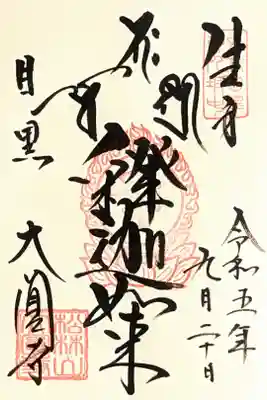 生身
令和五年
九月二十日
釋迦如来
目黒
大圓寺
松林山